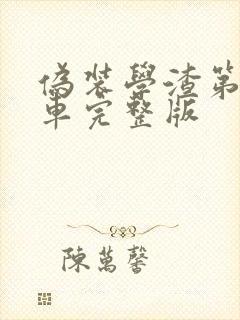 偽裝學渣第
車完整版
陳萬馨